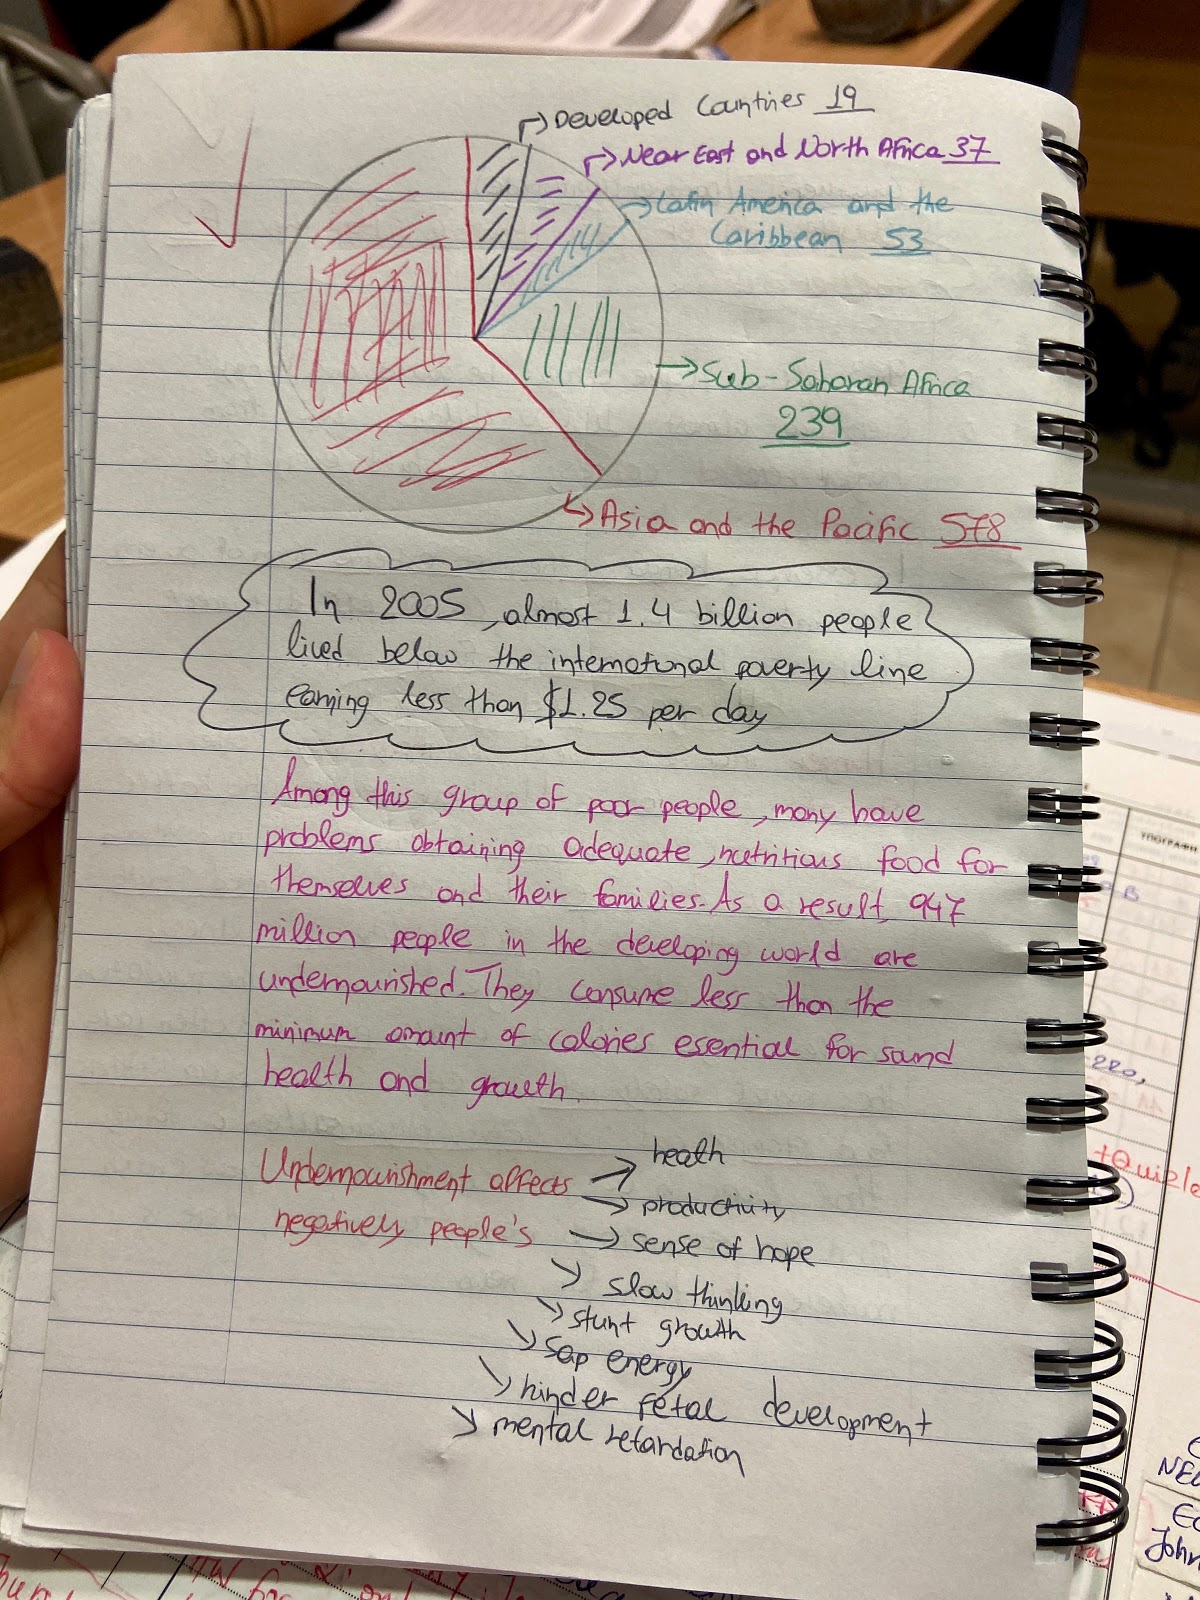 Developed Countries 19
Near East and North Africa 37
Latin America and the
Caribbean 53
Sub-Saharan Africa
239
Asia and the Pacific 578
In 2005, almost 1.4 billion people
lived below the international poverty line
earning less than $1.25 per day
Among this group of poor people, many have
problems obtaining adequate, nutritious food for
themselves and their families. As a result, 947
million people in the developing world are
undernourished. They consume less than the
minimum amount of calories esential for sound
health and growth.
Undernourishment affects
negatively people's
health
productivity
sense of hope
slow thinking
stunt growth
sap energy
hinder fetal development
mental retardation
ΥΠΟΓΡΑΦΗ
B
220,
+Quizle
NE
John